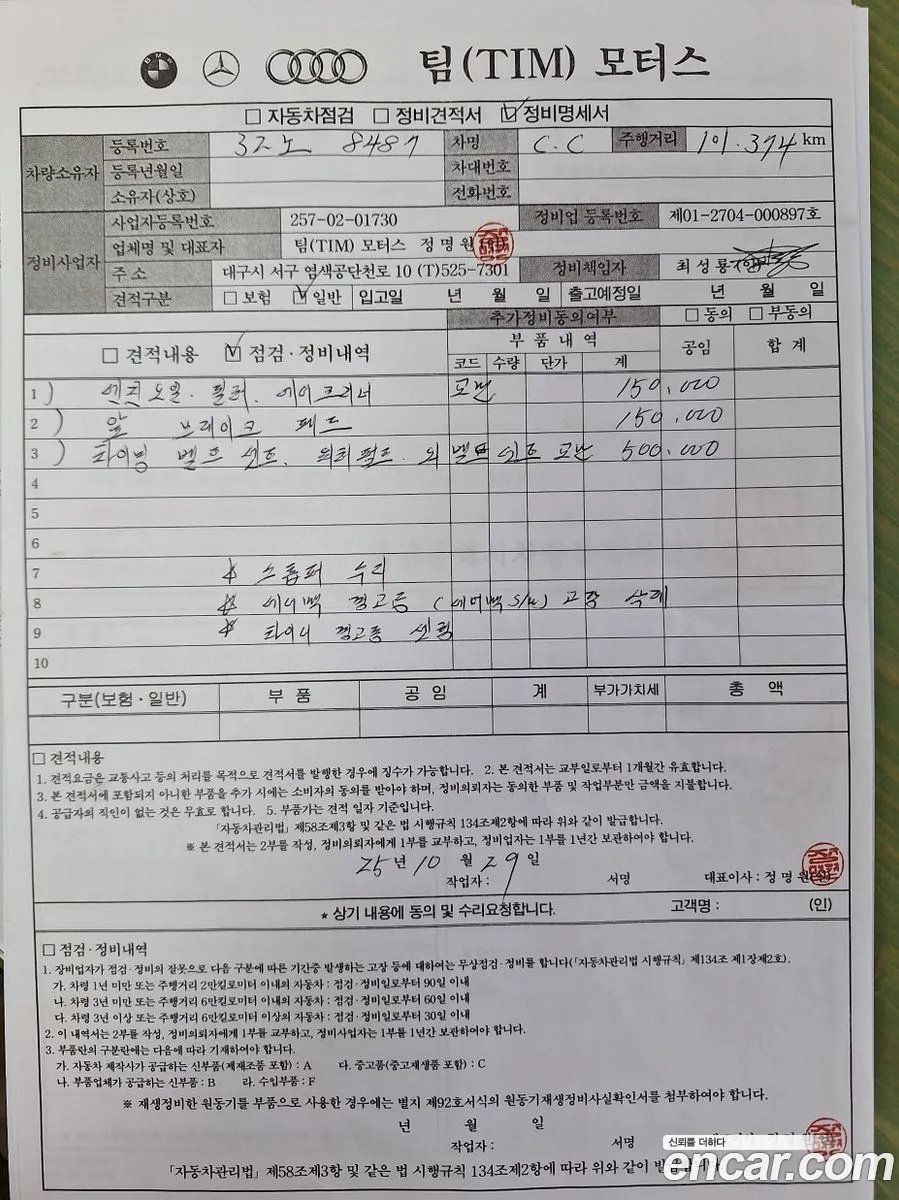 팀(TIM) 모터스
□ 자동차점검 □ 정비견적서 ☑ 정비명세서
차량소유자 등록번호 32노 8487 차명 C.C 주행거리 101.374 km
등록년월일 차대번호
소유자(상호) 전화번호
정비사업자 사업자등록번호 257-02-01730 정비업 등록번호 제01-2704-000897호
업체명 및 대표자 팀(TIM) 모터스 정명원 (인)
주 소 대구시 서구 염색공단천로 10 (T)525-7301 정비책임자 최성룡
견적구분 □ 보험 ☑ 일반 입고일 년 월 일 출고예정일 년 월 일
추가정비동의여부 □ 동의 □ 부동의
□ 견적내용 ☑ 점검·정비내역 부품내역 공임 합 계
코드 수량 단가 계
1) 엔진오일. 필터. 에어크리너 교환 150,000
2) 앞 브레이크 패드 150,000
3) 타이밍 벨트 셋트. 워터펌프. 외 벨트 셋트 교환 500,000
4
5
6
7 스톱퍼 수리
8 에어백 경고등 (에어백 S/W) 고장 삭제
9 타이어 경고등 센서
10
구분(보험·일반) 부 품 공 임 계 부가가치세 총 액
□ 견적내용
1. 견적요금은 교통사고 등의 처리를 목적으로 견적서를 발행한 경우에 징수가 가능합니다. 2. 본 견적서는 교부일로부터 1개월간 유효합니다.
3. 본 견적서에 포함되지 아니한 부품을 추가 시에는 소비자의 동의를 받아야 하며, 정비의뢰자는 동의한 부품 및 작업부분만 금액을 지불합니다.
4. 공급자의 직인이 없는 것은 무효로 합니다. 5. 부품가는 견적 일자 기준입니다.
「자동차관리법」 제58조제3항 및 같은 법 시행규칙 134조제2항에 따라 위와 같이 발급합니다.
※ 본 견적서는 2부를 작성, 정비의뢰자에게 1부를 교부하고, 정비업자는 1부를 1년간 보관하여야 합니다.
25년 10 월 29 일
작업자 : 서명 대표이사 : 정명원 (인)
* 상기 내용에 동의 및 수리요청합니다. 고객명 : (인)
□ 점검·정비내역
1. 장비업자가 점검·정비의 잘못으로 다음 구분에 따른 기간중 발생하는 고장 등에 대하여는 무상점검·정비를 합니다(「자동차관리법 시행규칙」 제134조 제1장제2호).
가. 차령 1년 미만 또는 주행거리 2만킬로미터 이내의 자동차 : 점검·정비일로부터 90일 이내
나. 차령 3년 미만 또는 주행거리 6만킬로미터 이내의 자동차 : 점검·정비일로부터 60일 이내
다. 차령 3년 이상 또는 주행거리 6만킬로미터 이상의 자동차 : 점검·정비일로부터 30일 이내
2. 이 내역서는 2부를 작성, 정비의뢰자에게 1부를 교부하고, 정비사업자는 1부를 1년간 보관하여야 합니다.
3. 부품란의 구분란에는 다음에 따라 기재하여야 합니다.
가. 자동차 제작사가 공급하는 신부품(제재조품 포함) : A 다. 중고품(중고재생품 포함) : C
나. 부품업체가 공급하는 신부품 : B 라. 수입부품 : F
※ 재생정비한 원동기를 부품으로 사용한 경우에는 별지 제92호서식의 원동기재생정비사실확인서를 첨부하여야 합니다.
년 월 일
작업자 : 서명
「자동차관리법」 제58조제3항 및 같은 법 시행규칙 134조제2항에 따라 위와 같이 발급
신뢰를 더하다
encar.com